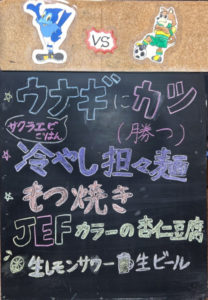 VS
ウナギにカツ
(勝つ)
サクラエビ
ごはん
冷やし担々麺
もつ焼き
JEFカラーの杏仁豆腐
生レモンサワー 生ビール